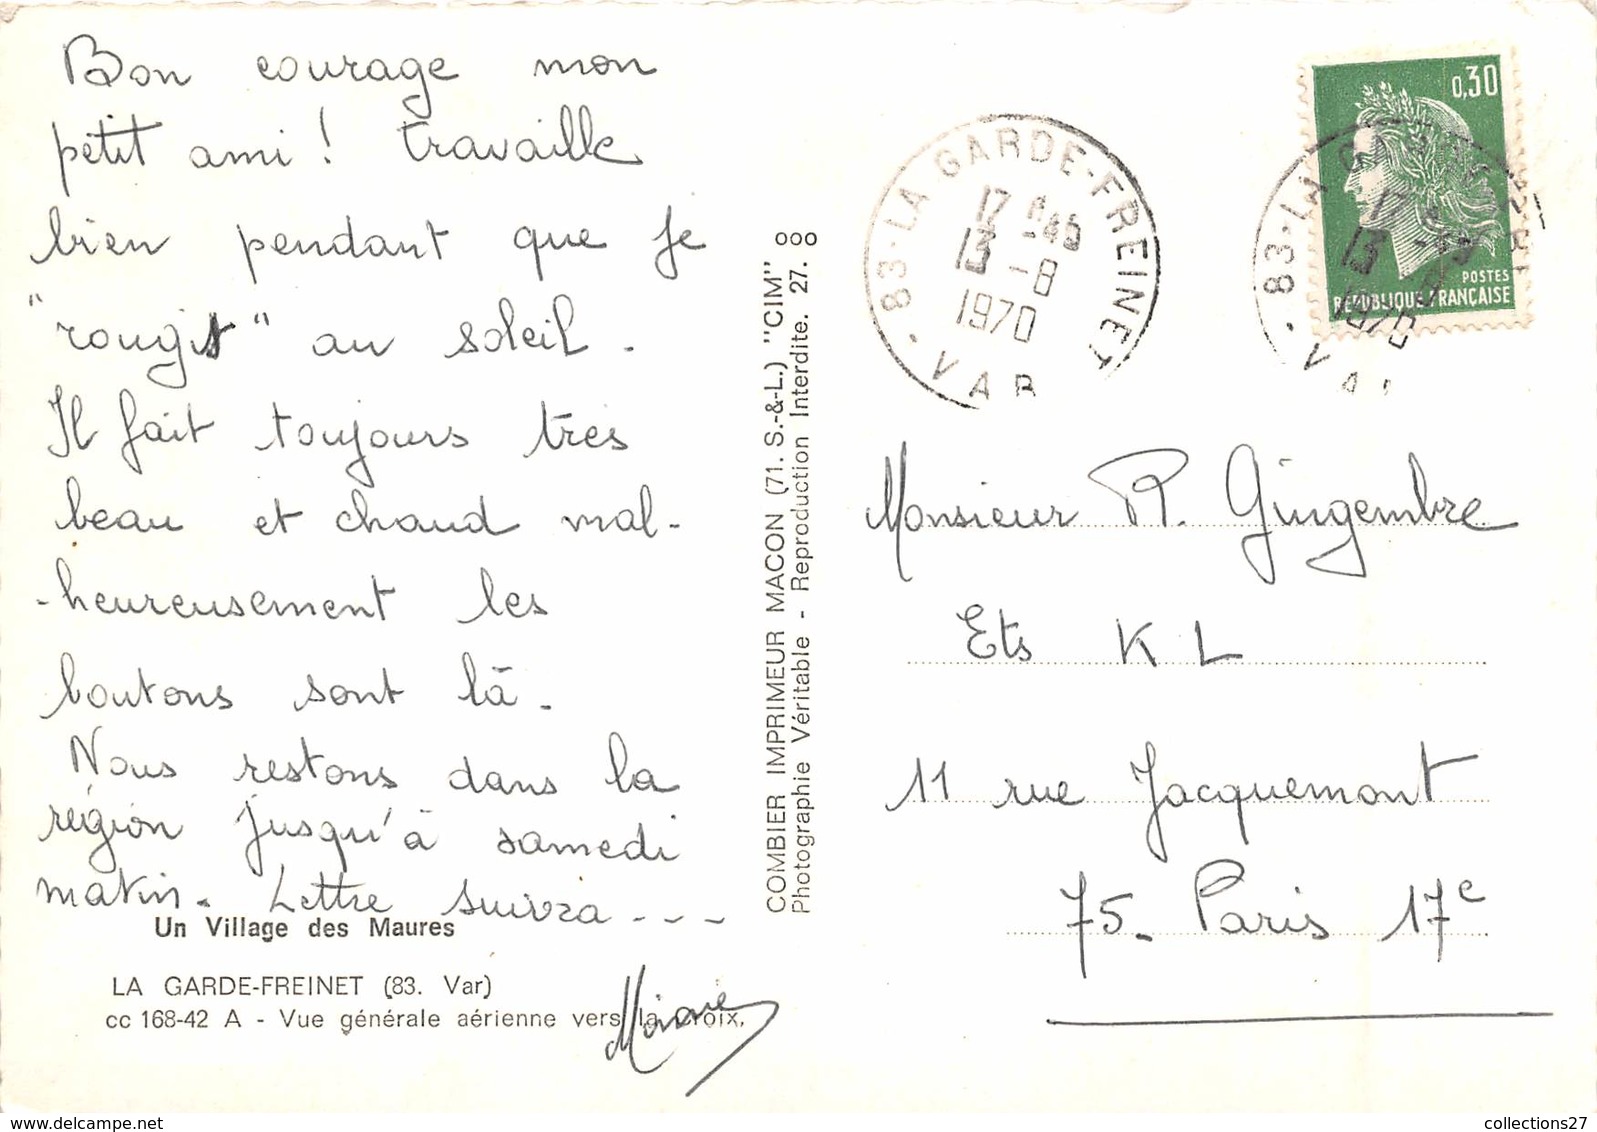 Bon courage mon
petit ami ! travaille
bien pendant que je
"rougis" au soleil.
Il fait toujours très
beau et chaud mal-
-heureusement les
boutons sont là.
Nous restons dans la
région jusqu'à samedi
matin. Lettre suivra ---
Un Village des Maures
LA GARDE-FREINET (83. Var)
cc 168-42 A - Vue générale aérienne vers la Croix,
COMBIER IMPRIMEUR MACON (71. S.-&-L.) "CIM"
Photographie Véritable - Reproduction Interdite. 27. 000
83-LA GARDE-FREINET
17H45
13-8
1970
VAR
0,30
POSTES
REPUBLIQUE FRANÇAISE
83-LA GARDE-FREINET
17H45
13-8
1970
VAR
Monsieur R. Gingembre
Ets K L
11 rue Jacquemont
75. Paris 17e
collections27